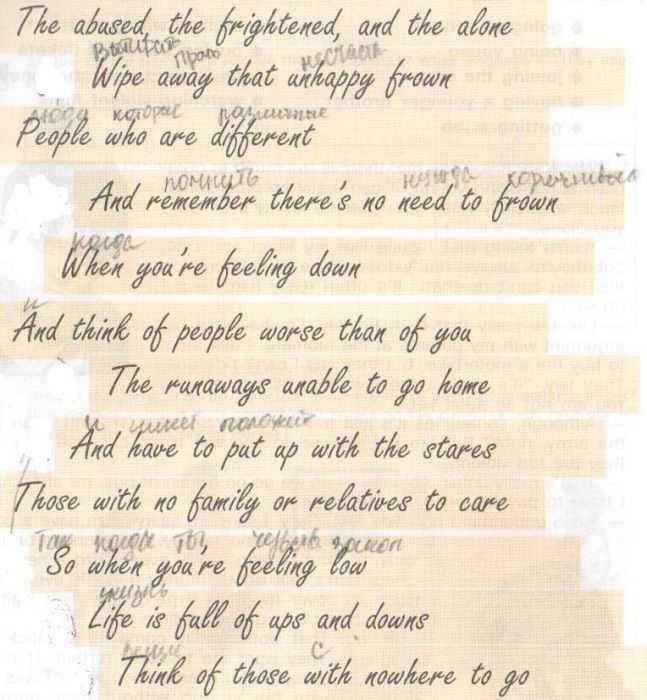 The abused, the frightened, and the alone
вытирать прочь несчаст
Wipe away that unhappy frown
люди которые различные
People who are different
помнить нужда
And remember there's no need to frown
когда
When you're feeling down
и
And think of people worse than of you
The runaways unable to go home
и имеет положит
And have to put up with the stares
Those with no family or relatives to care
Так когда ты
So when you're feeling low
жизнь
Life is full of ups and downs
с
Think of those with nowhere to go